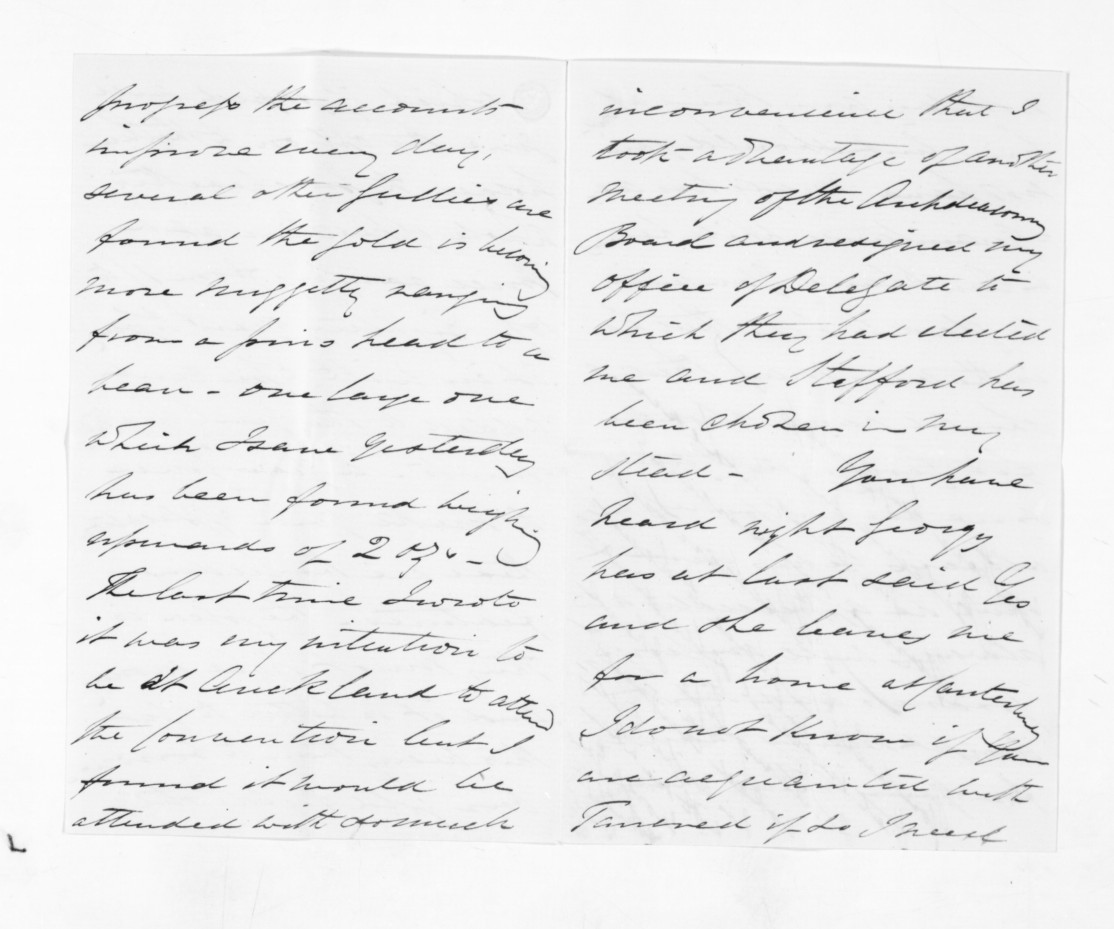 progress the accounts
improve every day,
several other Gullies are
found the gold is becoming
more nuggetty ranging
from a pins head to a
bean - one large one
which I saw yesterday
has been found weighing
upwards of 2 ozs -
The last time I wrote
it was my intention to
be at Auckland to attend
the Convention but I
found it would be
attended with so much
inconvenience that I
took advantage of another
meeting of the Archdeaconry
Board and resigned my
office of Delegate to
which they had elected
me and Stafford has
been chosen in my
stead - You have
heard right Georgy
has at last said Yes
and she leaves me
for a home at Canterbury
I do not know if you
are acquainted with
Tancred if so I need